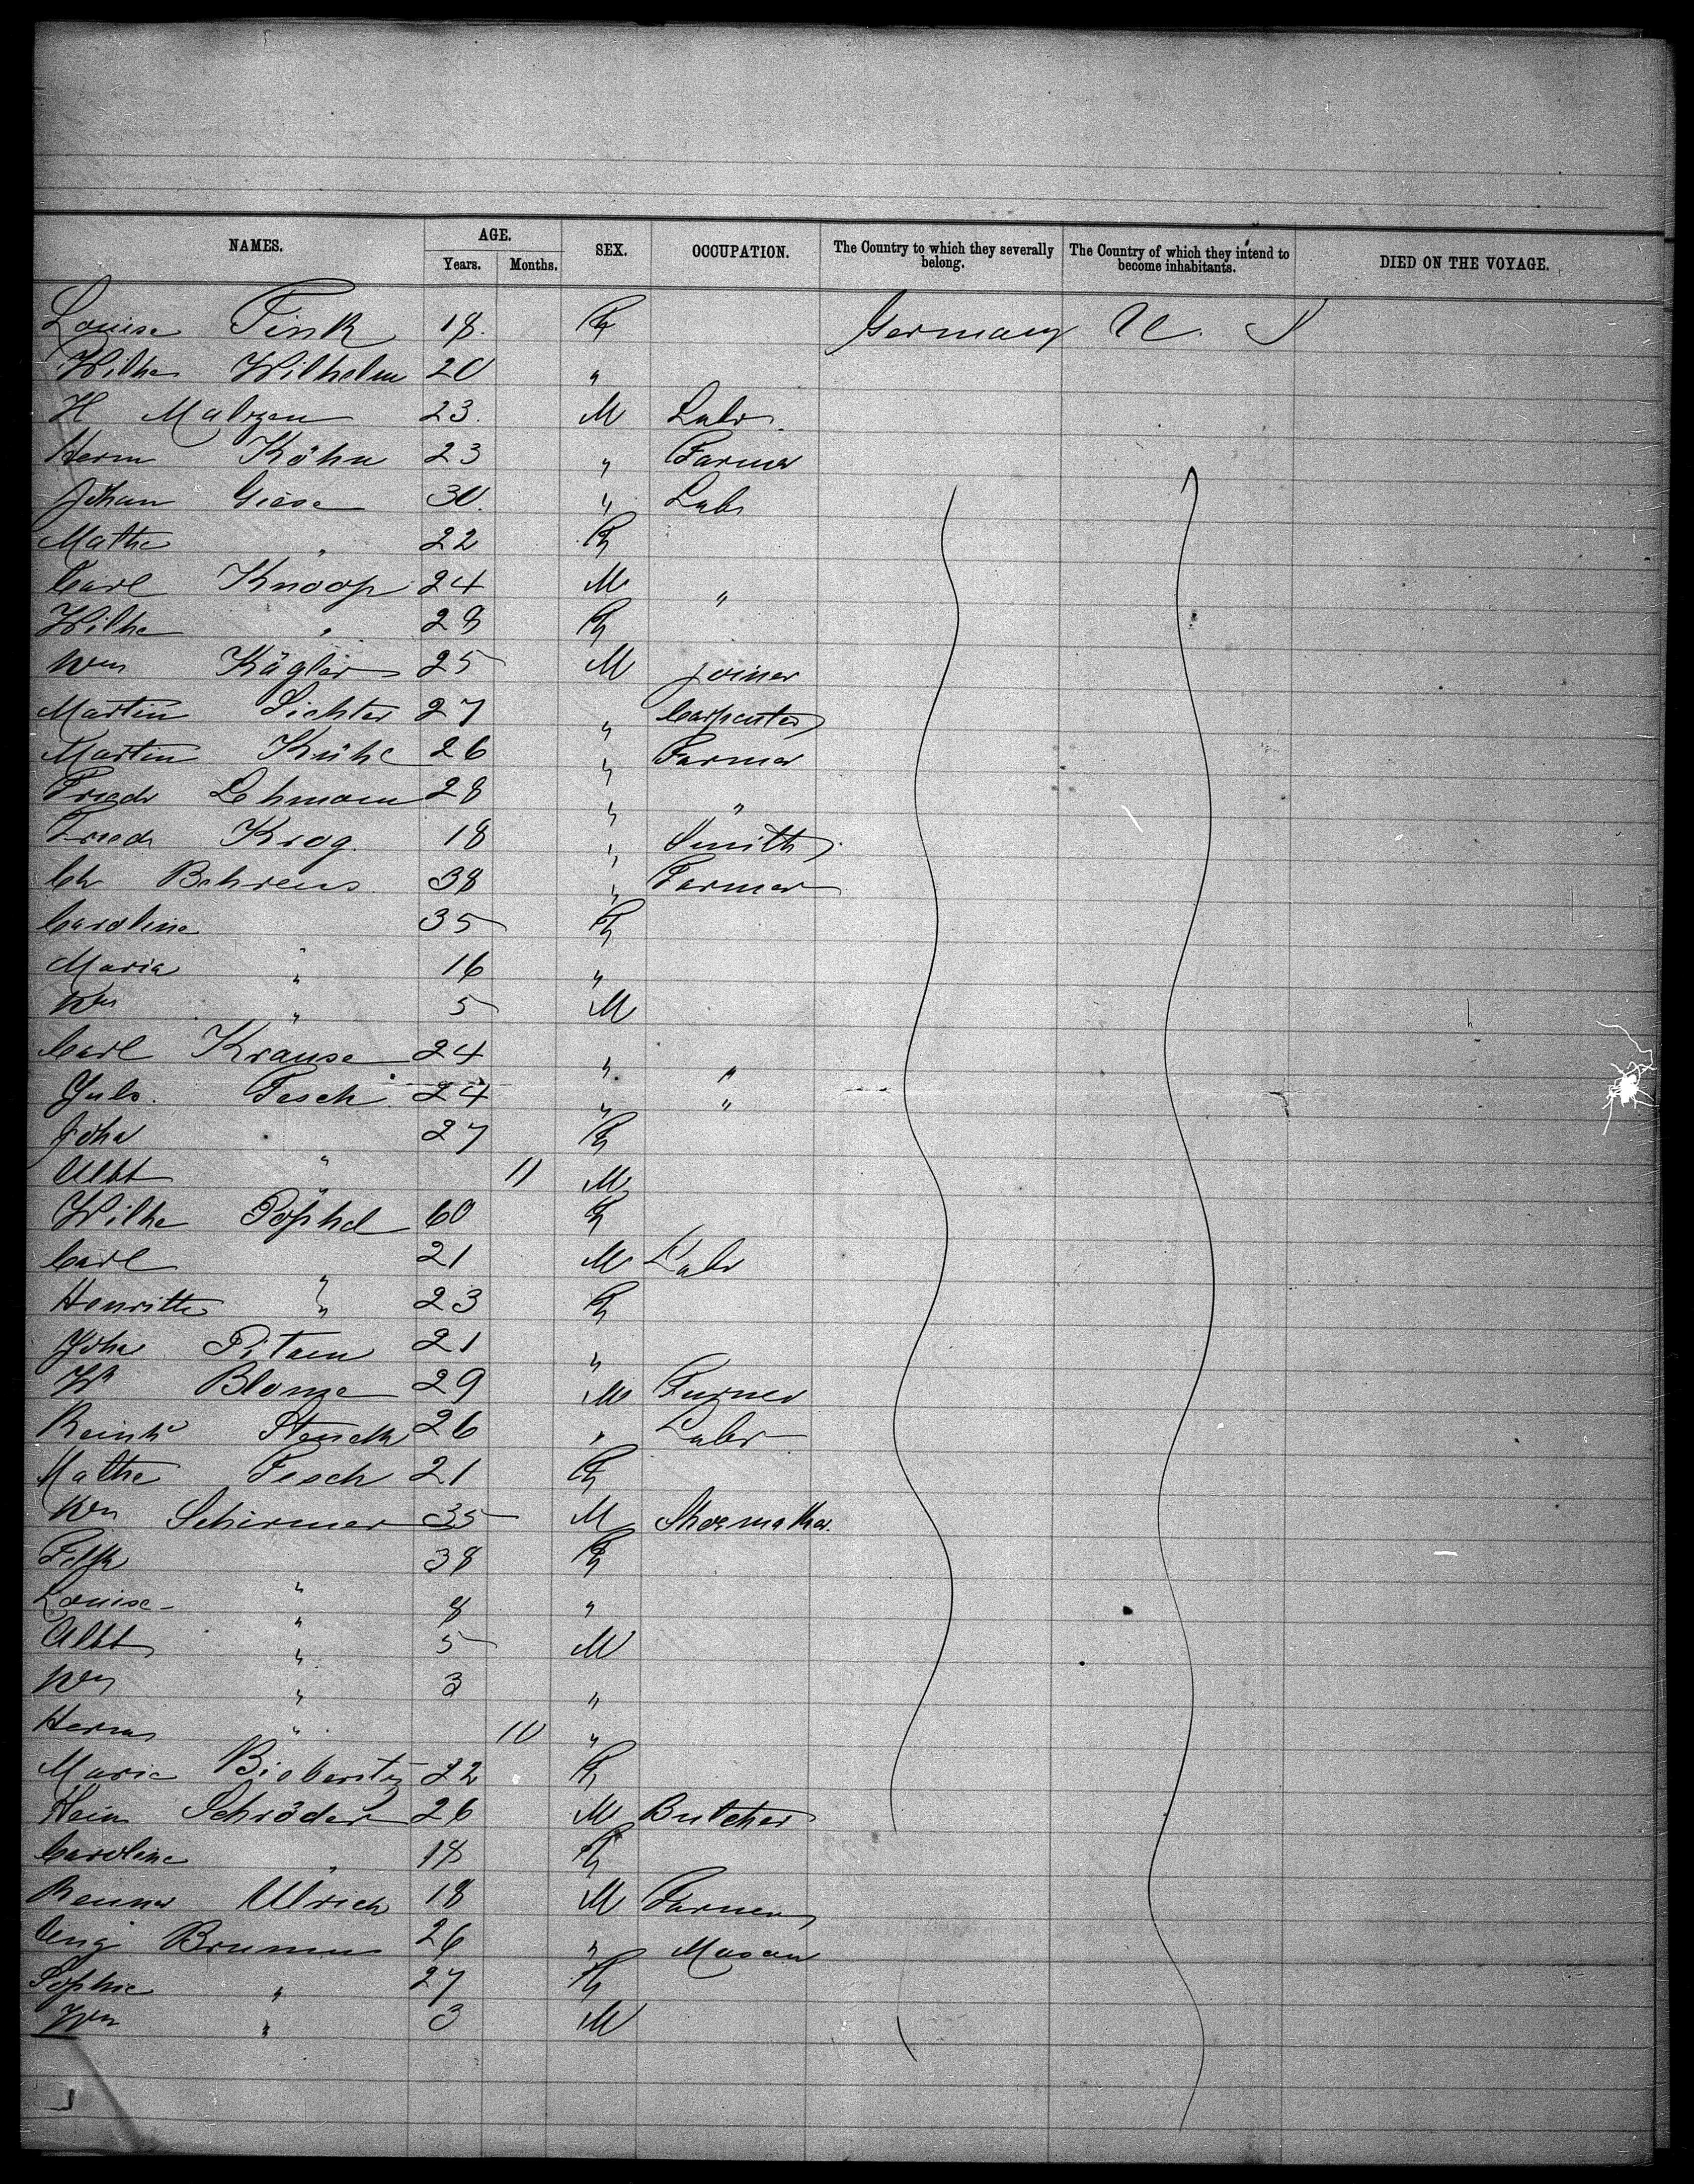 NAMES. AGE. SEX. OCCUPATION. The Country to which they severally belong. The Country of which they intend to become inhabitants. DIED ON THE VOYAGE.
Years. Months.
Louise Fink 18. F Germany U. S
Wilhe Wilhelm 20 "
H Malzen 23. M Labr.
Herm Köhn 23 " Farmer
Johan Giese 30. " Labr
Mathe " 22 F
Carl Knoop 24 M "
Wilhe " 28 F
Wm Kägler 25 M Joiner
Martin Lichter 27 " Carpenter
Martin Kühe 26 " Farmer
Friedr Lehmann 28 " "
Friedr Krog. 18 " Smith
Ch Behrens 38 " Farmer
Caroline 35 F
Maria " 16 "
Wm " 5 M
Carl Krause 24 " "
Juls. Tesch 24 " "
Joha " 27 F
Albt " 11 M
Wilhe 60 F
Carl " 21 M Labr
Henritte " 23 F
Joha 21 "
Wm Blome 29 M Turner
Reinhd 26 " Labr
Mathe Tesch 21 F
Wm Schirmer 35 M Shoemaker.
38 F
Louise " 8 "
Albt " 5 M
Wm " 3 "
Herm " 10 "
Marie 22 F
Hein Schröder 26 M Butcher
Caroline " 18 F
Ulrich 18 M Farmer
Aug 26 " Mason
Sophie " 27 F
Wm " 3 M